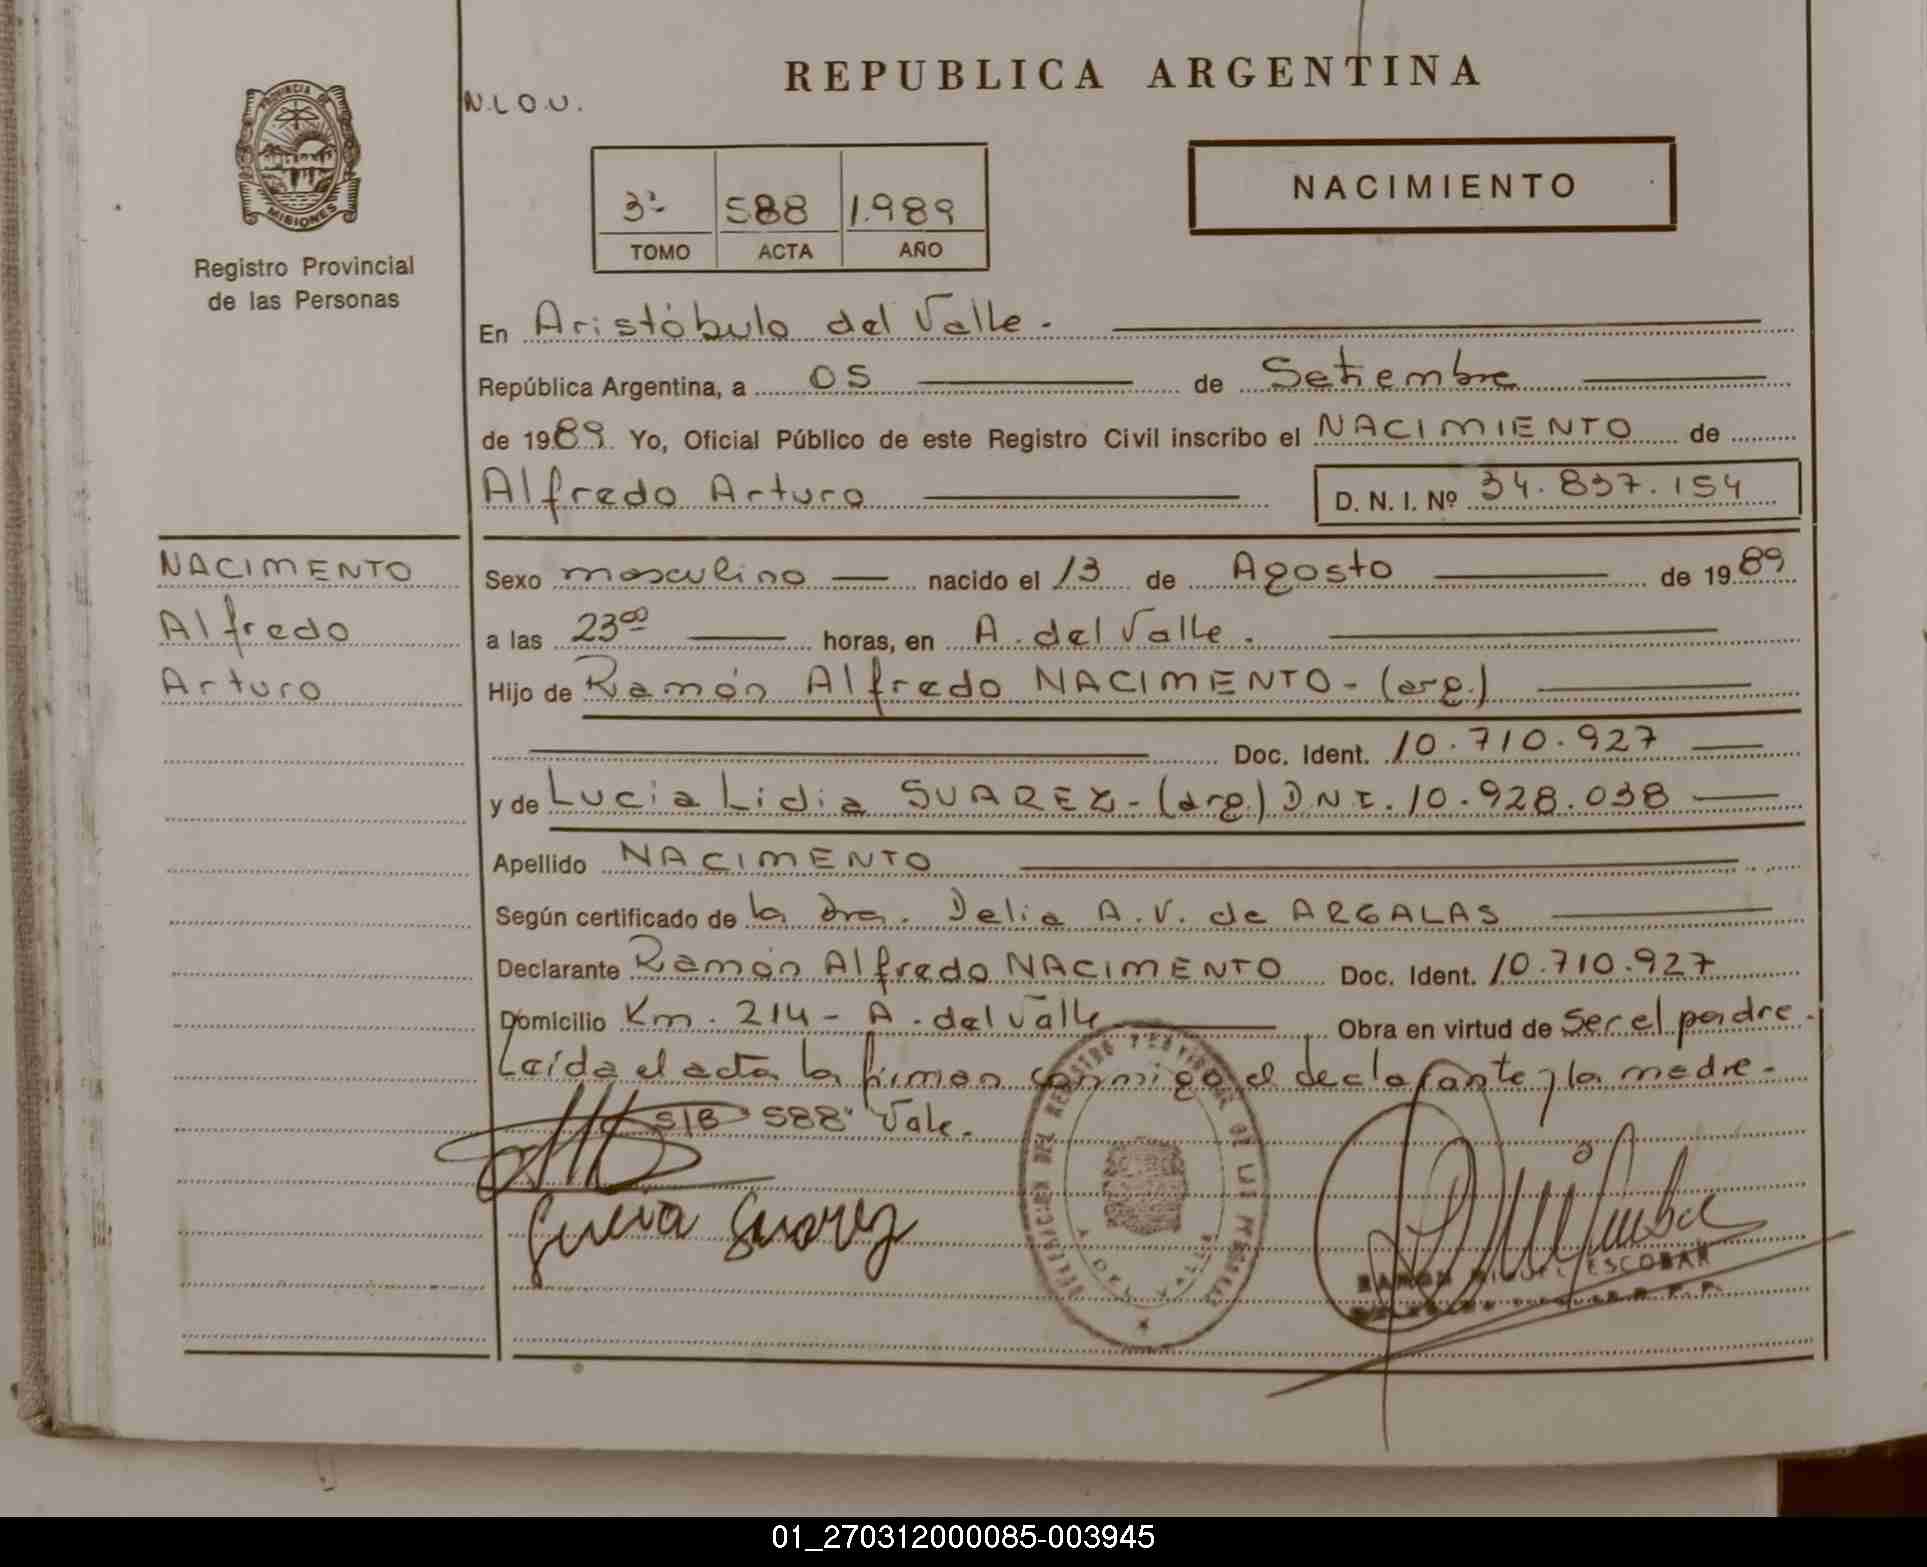 REPUBLICA ARGENTINA
N.L.O.U.
PROVINCIA DE
MISIONES
Registro Provincial
de las Personas
NACIMIENTO
3º 588 1.989
TOMO ACTA AÑO
En Aristóbulo del Valle.
República Argentina, a 05 de Setiembre
de 1989. Yo, Oficial Público de este Registro Civil inscribo el NACIMIENTO de
Alfredo Arturo D. N. I. Nº 34.837.154
NACIMENTO
Alfredo
Arturo
Sexo masculino nacido el 13 de Agosto de 1989
a las 23⁰⁰ horas, en A. del Valle.
Hijo de Ramón Alfredo NACIMENTO - (arg.)
Doc. Ident. 10.710.927
y de Lucia Lidia SUAREZ - (arg.) D.N.I. 10.928.038
Apellido NACIMENTO
Según certificado de la Dra. Delia A.V. de ARGALAS
Declarante Ramón Alfredo NACIMENTO Doc. Ident. 10.710.927
Domicilio Km. 214 - A. del Valle Obra en virtud de ser el padre.
Leída el acta la firman conmigo el declarante y la madre.
S/B "588" Vale.
Lucia Suarez
DEL REGISTRO PROVINCIAL DE LAS PERSONAS
A. DEL VALLE
RAMON MIGUEL ESCOBAR
01_270312000085-003945